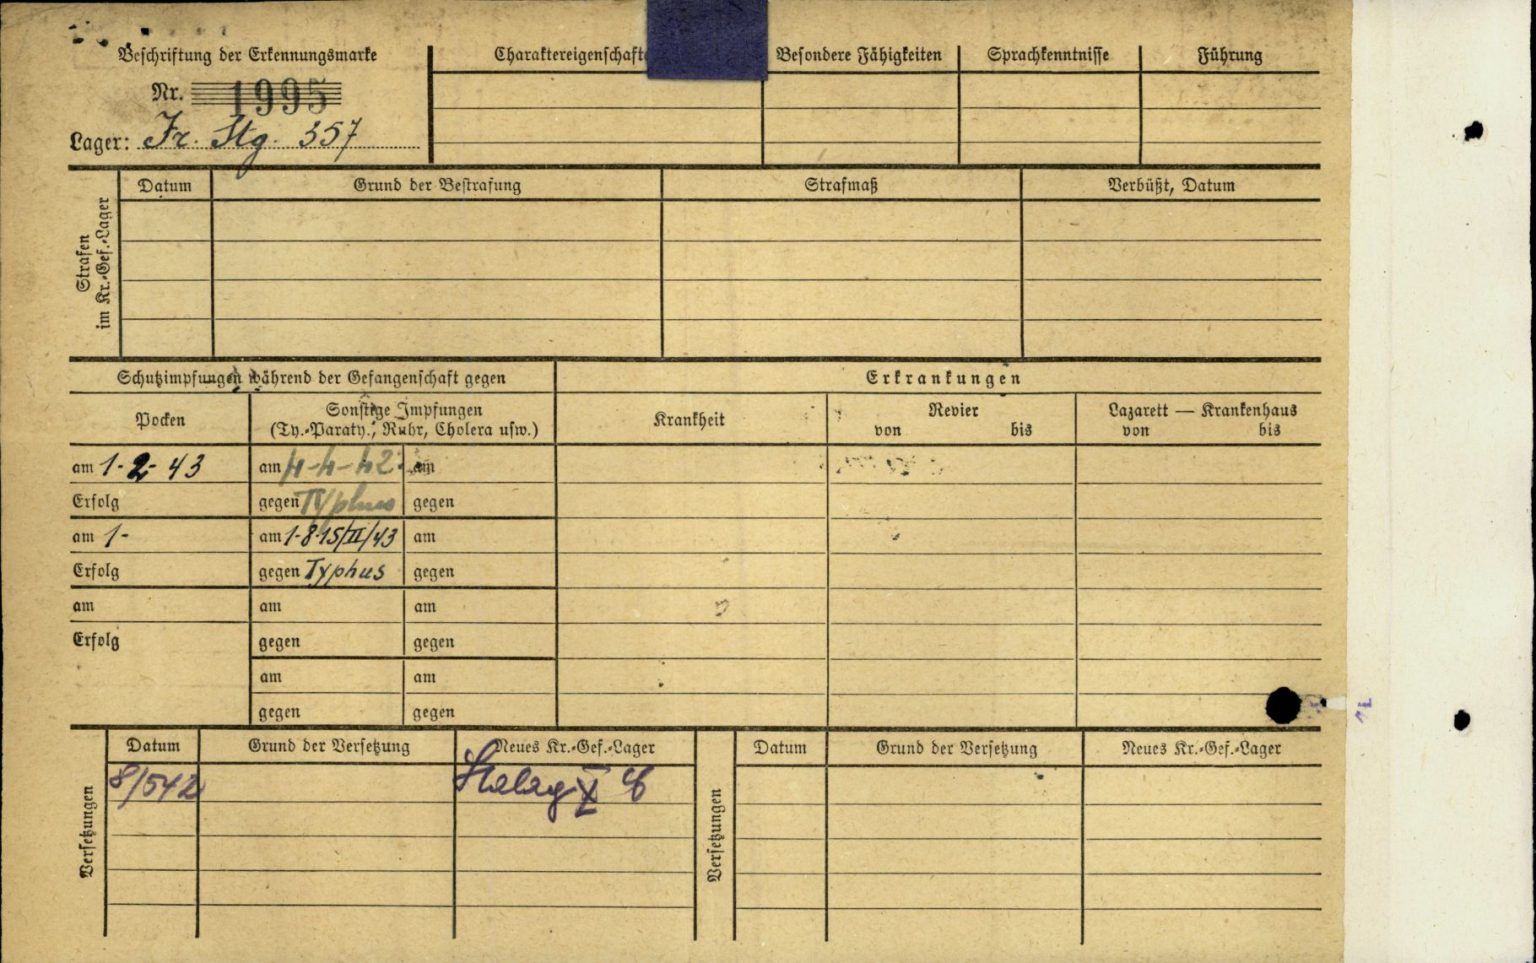 Beschriftung der Erkennungsmarke
Nr. 1995
Lager: Fr. Stg. 357
Charaktereigenschafte
Besondere Fähigkeiten
Sprachkenntnisse
Führung
Strafen
im Kr.-Gef.-Lager
Datum
Grund der Bestrafung
Strafmaß
Verbüßt, Datum
Schutzimpfungen während der Gefangenschaft gegen
Erkrankungen
Pocken
Sonstige Impfungen
(Ty.-Paraty., Ruhr, Cholera usw.)
Krankheit
Revier
von bis
Lazarett — Krankenhaus
von bis
am 1-2-43 am 4-4-42 am
Erfolg gegen Typhus gegen
am 1- am 1-8-15/II/43 am
Erfolg gegen Typhus gegen
am am am
Erfolg gegen gegen
am am
gegen gegen
Versetzungen
Datum Grund der Versetzung Neues Kr.-Gef.-Lager
8/542 Stalag X
Versetzungen
Datum Grund der Versetzung Neues Kr.-Gef.-Lager